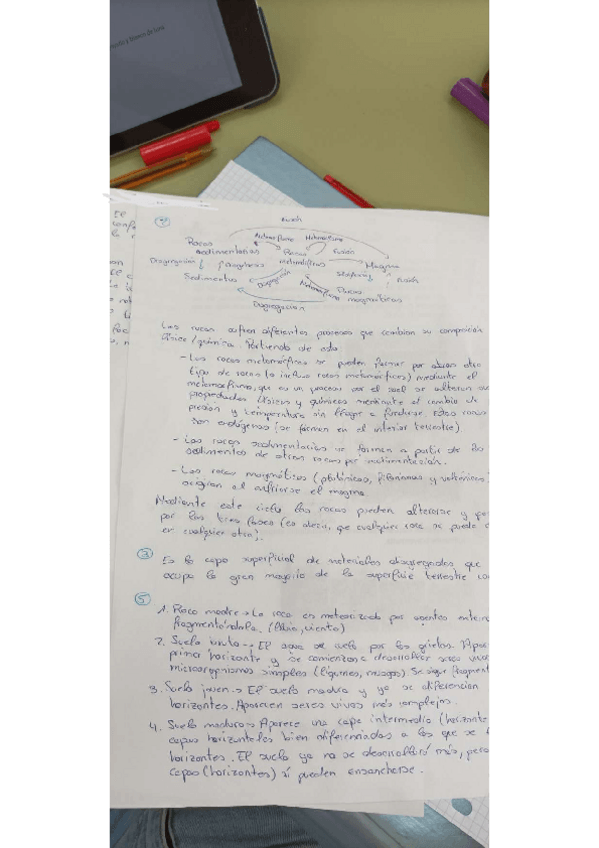 Metamorfismo Metamorfismo
Rocas sedimentarias
Rocas metamórficas
Fusión
Magma
Disgregación
Diagénesis
Sedimentos
Disgregación
Metamorfismo
Rocas magmáticas
Disgregación
Las rocas sufren diferentes procesos que cambian su composición
física/química. Partiendo de esto
- Las rocas metamórficas se pueden formar por otro
tipo de rocas (o incluso rocas metamórficas) mediante el
metamorfismo, que es un proceso por el cual se alteran sus
propiedades físicas y químicas mediante el cambio de
presión y temperatura sin llegar a fundirse. Estas rocas
son endógenas (se forman en el interior terrestre).
- Las rocas sedimentarias se forman a partir de los
sedimentos de otras rocas por sedimentación.
- Las rocas magmáticas (plutónicas, filonianas y volcánicas)
se al enfriarse el magma.
Mediante este ciclo las rocas pueden alterarse y
por las tres fases (es decir, que cualquier roca se puede
en cualquier otra).
3 Es la capa superficial de materiales disgregados que
ocupa la gran mayoría de la superficie terrestre
5
1. Roca madre → La roca es meteorizada por agentes
fragmentándola. (lluvia, viento)
2. Suelo bruto → El agua se cuela por las grietas.
primer horizonte y se comienzan a desarrollar seres vivos
microorganismos simples (líquenes, musgos). Se sigue
3. Suelo joven → El suelo madura y ya se diferencian
horizontes. Aparecen seres vivos más complejos.
4. Suelo maduro → Aparece una capa intermedia (horizonte
capas horizontales bien diferenciadas a las que se
horizontes. El suelo ya no se desarrollará más, pero
capas (horizontes) sí pueden ensancharse.